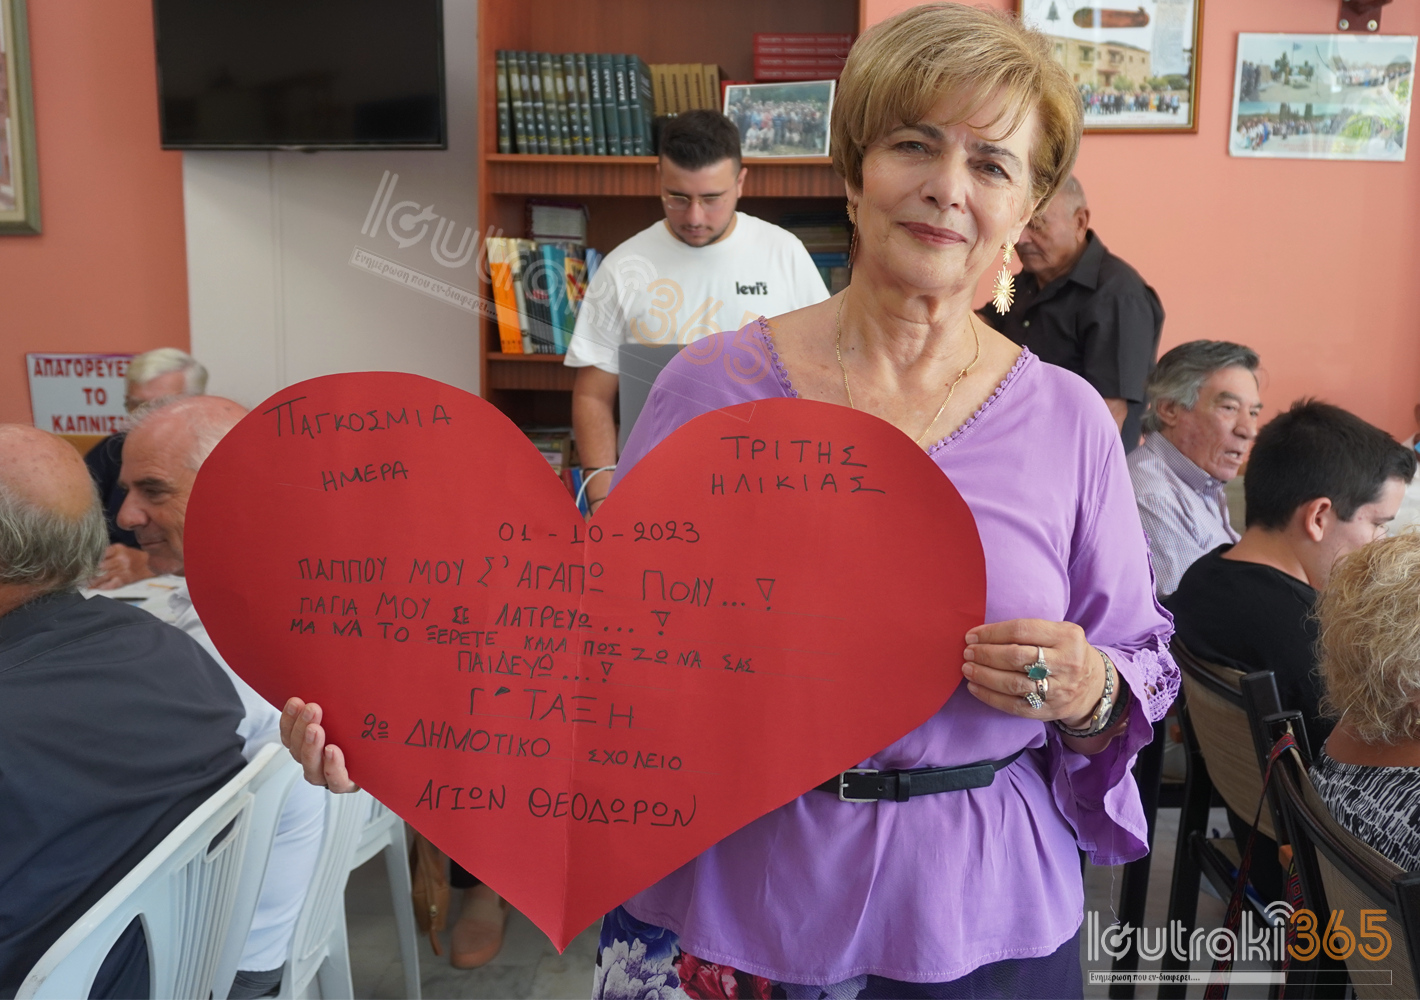 ΠΑΓΚΟΣΜΙΑ
ΗΜΕΡΑ
ΤΡΙΤΗΣ
ΗΛΙΚΙΑΣ
01-10-2023
ΠΑΠΠΟΥ ΜΟΥ Σ' ΑΓΑΠΩ ΠΟΛΥ...!
ΓΙΑΓΙΑ ΜΟΥ ΣΕ ΛΑΤΡΕΥΩ...!
ΜΑ ΝΑ ΤΟ ΞΕΡΕΤΕ ΚΑΛΑ ΠΩΣ ΖΩ ΝΑ ΣΑΣ
ΠΑΙΔΕΥΩ...!
Γ' ΤΑΞΗ
2ο ΔΗΜΟΤΙΚΟ ΣΧΟΛΕΙΟ
ΑΓΙΩΝ ΘΕΟΔΩΡΩΝ
levi's
ΑΠΑΓΟΡΕΥΕ
ΤΟ
ΚΑΠΝΙΣ
ΕΛΛΑΣ
loutraki365
Ενημέρωση που εν-διαφέρει....
loutraki365
Ενημέρωση που εν-διαφέρει....